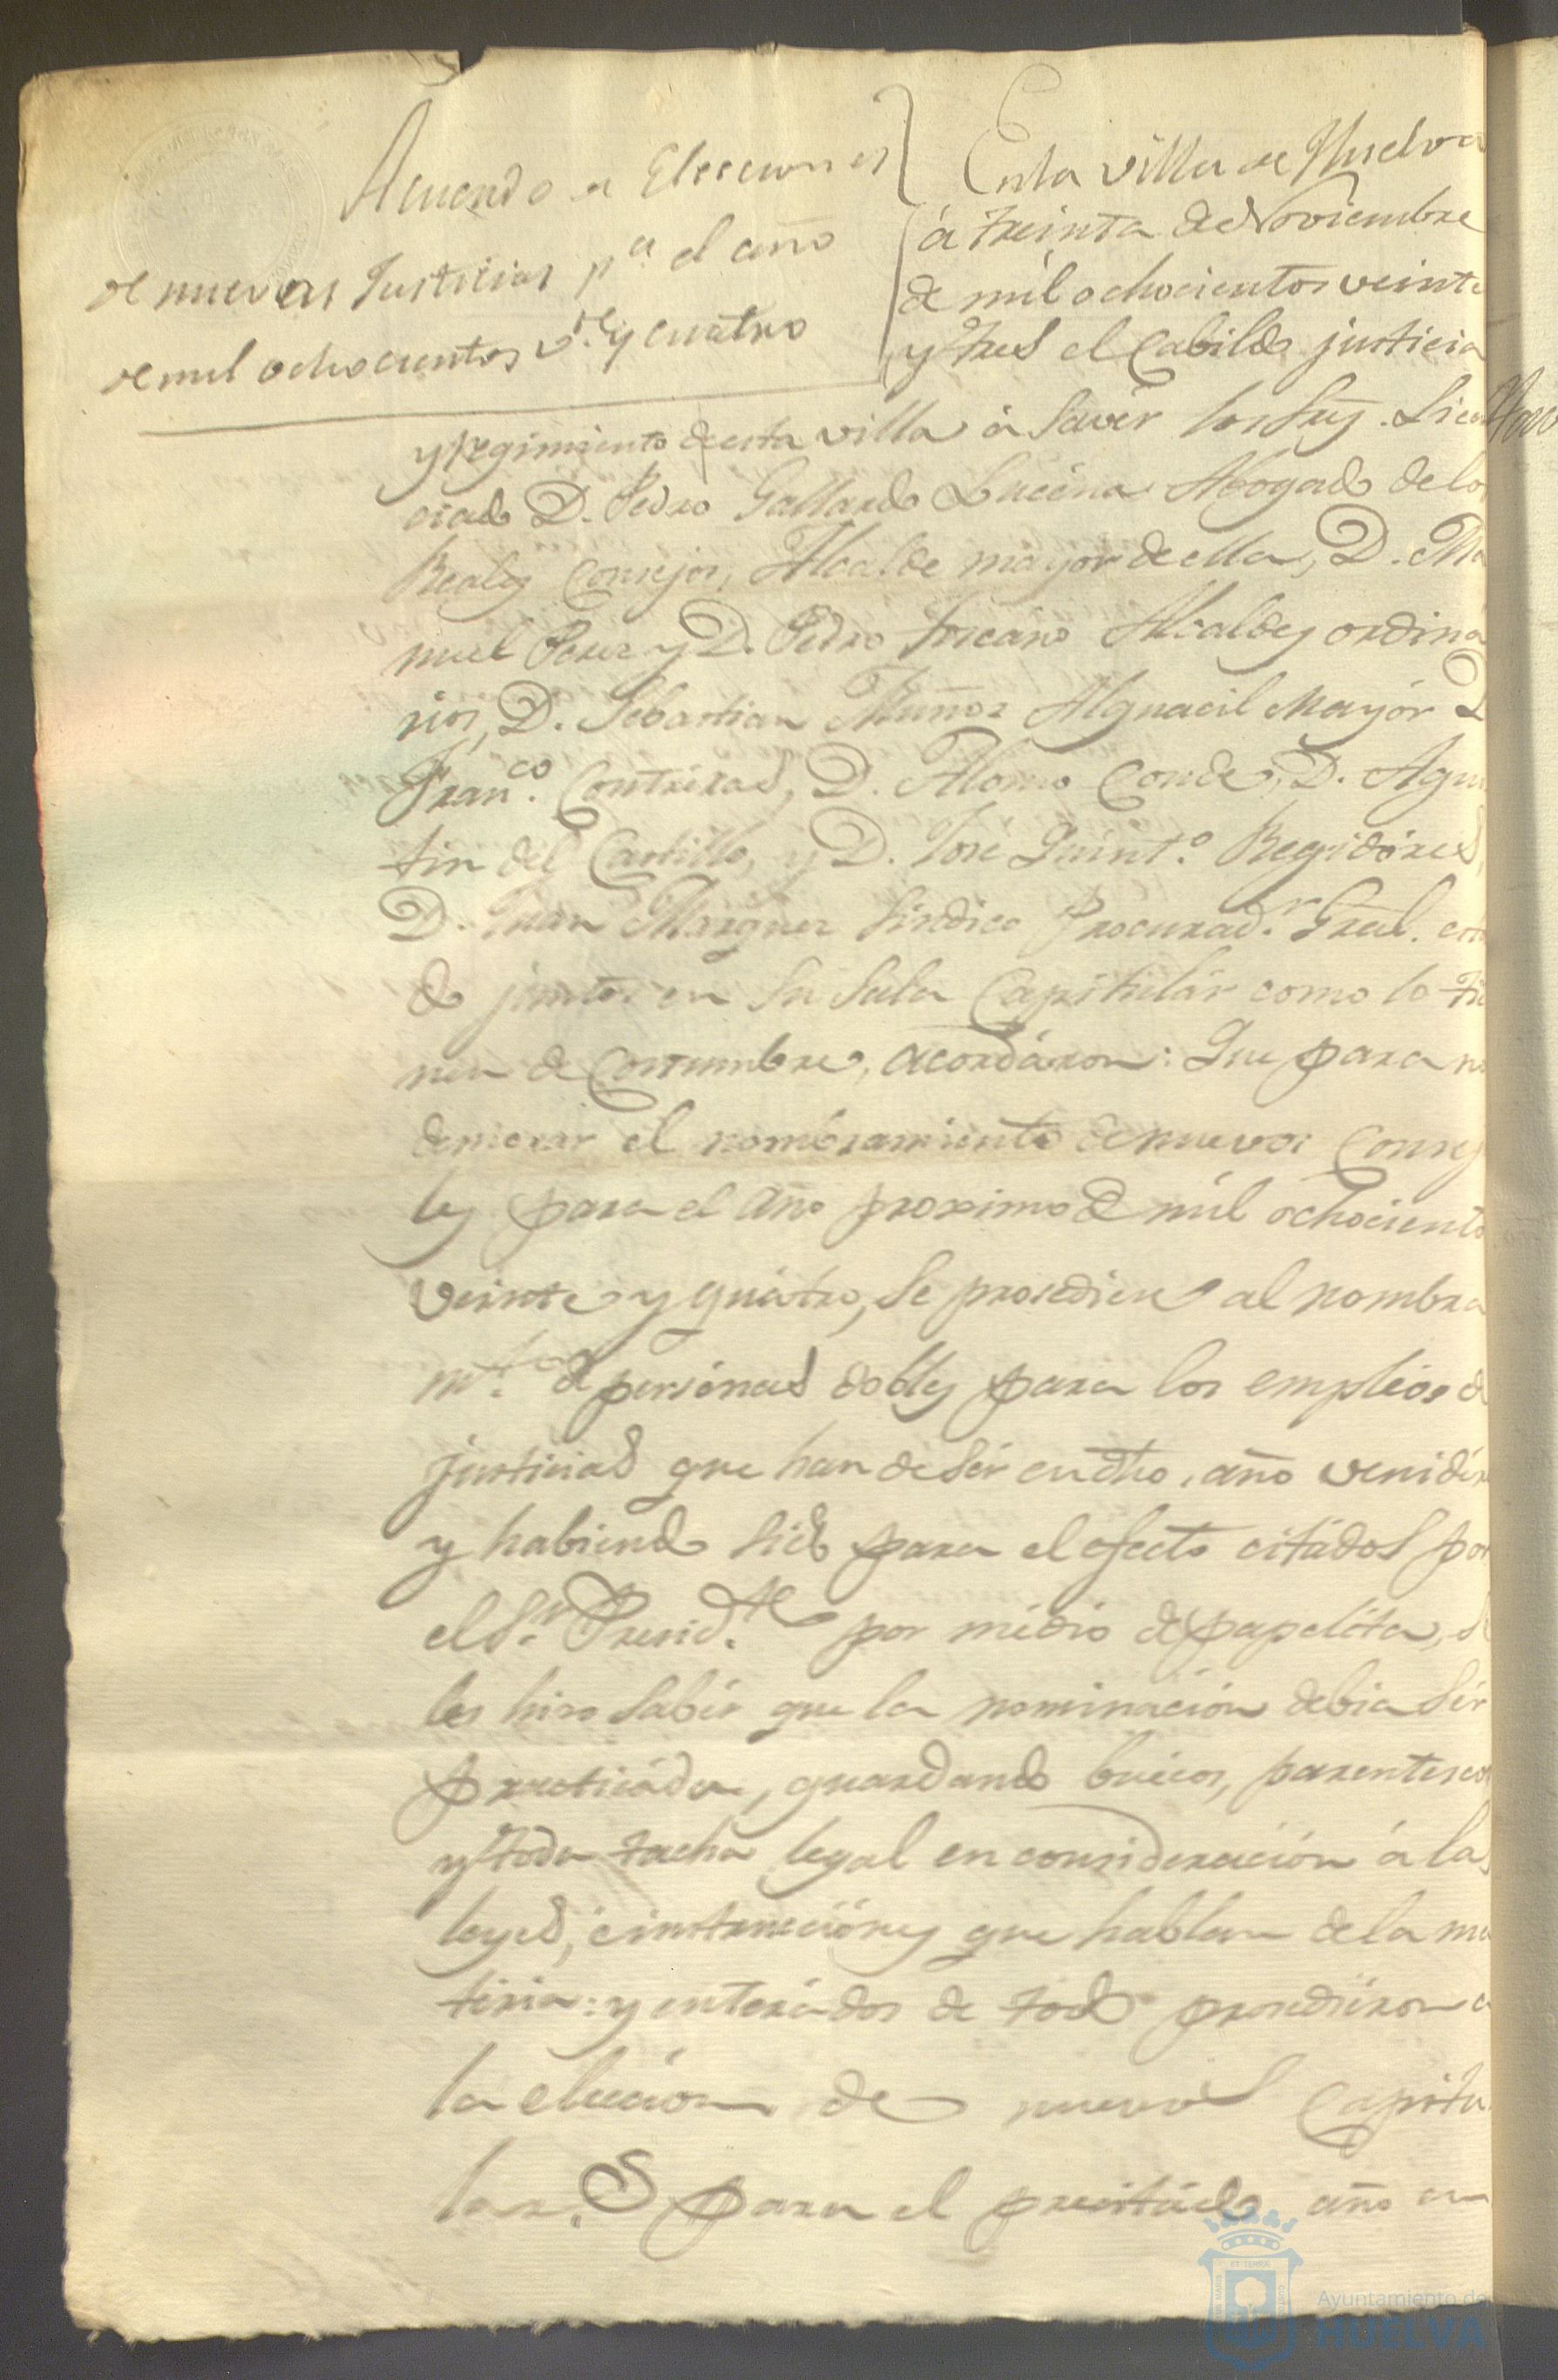 Acuerdo de Elecciones
de nuevas Justicias p.a el año
de mil ochocientos v.te y cuatro
En la villa de Huelva
á treinta de Noviembre
de mil ochocientos veinte
y tres el Cabildo justicia
y regimiento de esta villa á Saver los Señ. Licen
ciado D. Pedro Gallardo Lucena Abogado de los
Reales Consejos, Alcalde mayor de ella, D. Ma
nuel Perez y D. Pedro Toscano Alcaldes ordina
rios, D. Sebastian Muñoz Alguacil Mayór D
Fran.co Contreras, D. Alonso Conde, D. Agus
tin del Castillo, y D. José Quint.o Regidóres,
D. Juan Marquez Sindico Procurad.r Gral. estan
do juntos en su Sala Capitulár como lo tie
nen de Costumbre, acordáron: Que para no
demorar el nombramiento de nuevos Conseja
les para el año proximo de mil ochociento
veinte y quatro, se prosediese al nombra
m.to de persónas dobles para los empléos de
justicias que han de sér en dho. año venidér
y habiendo sido para el efecto citádos por
el S.r Presid.te por médio de papeléta, se
les hiso sabér que la nominación debia sér
practicáda, guardando huécos, parentescos
y toda tacha legal en consideración á las
leyes, é instrucciónes que hablan de la ma
téria: y enterádos de todo prosediéron a
la elección de nuevos Capitu
lar.s para el precitádo año en
Ayuntamiento de
HUELVA